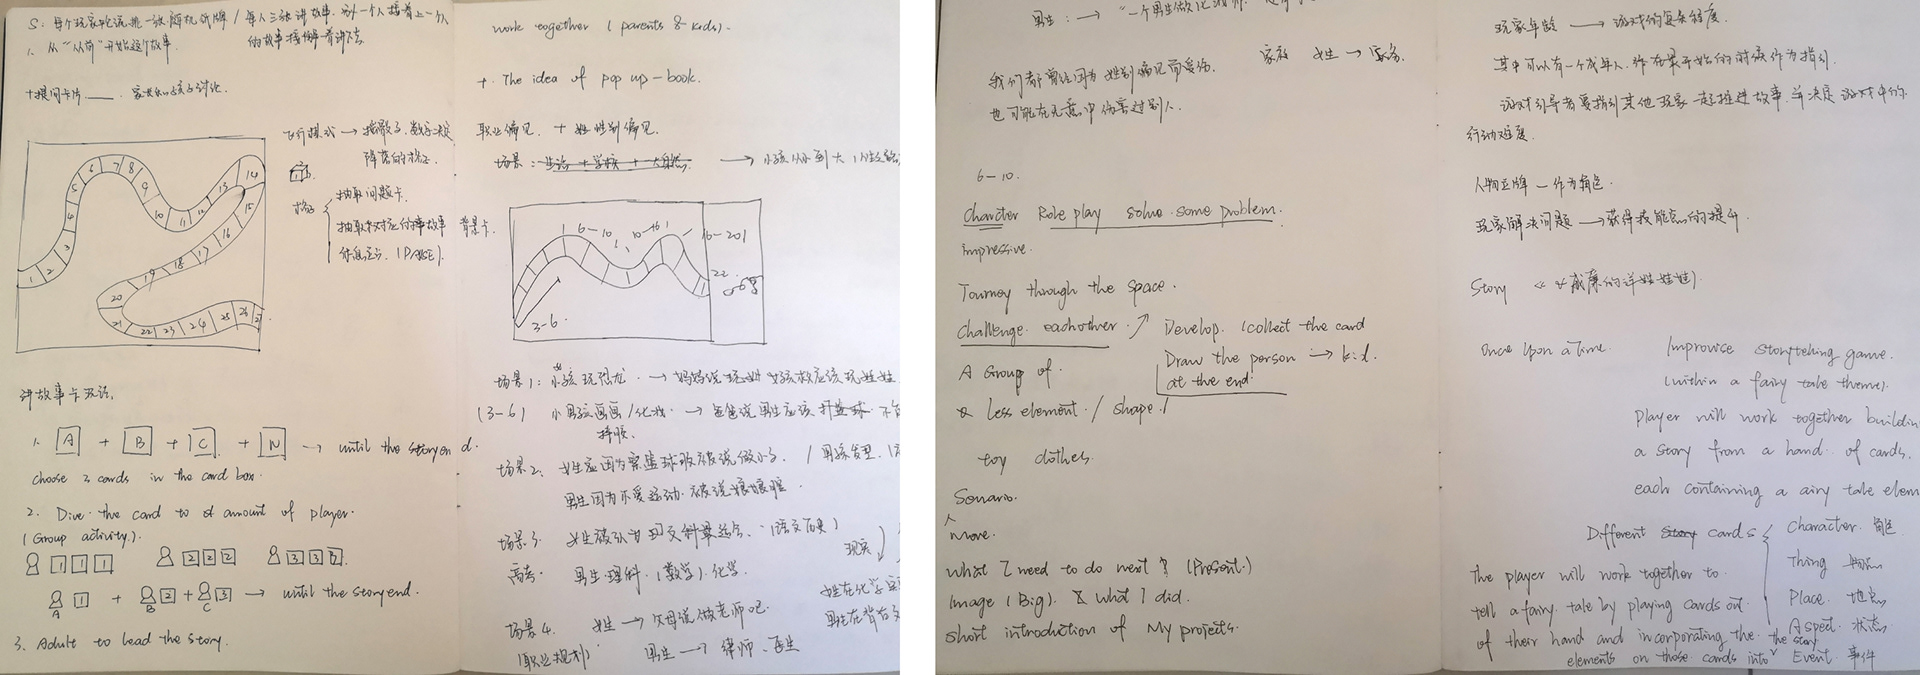 S: 每个玩家轮流抽一张随机纸牌 / 每人三张讲故事. 另一个人接着上一个人
的故事接像着讲下去
1. 从“从前”开始这个故事.
+提问卡片 家长和孩子讨论.
飞行模式 → 掷骰子. 数字决定
降落的格子.
格子
抽取问题卡.
抽取对应的故事
休息定点. (PAUSE).
1 2 3 4 5 6 7 8 9 10 11 12 13 14 15 16 17 18 19 20 21 22 23 24 25 26 27
讲故事卡玩法.
1. A + B + C + N → until the story end.
choose 3 cards in the card box.
2. Dive the card to amount of player.
(Group activity).
1 1 1 2 2 2 3 3 3
1 + 2 + 3 → until the story end.
A B C
3. Adult to lead the story.
work together ( parents & kids).
+ The idea of pop up-book.
职业偏见. + 性别偏见.
场景: 生活 + 学校 + 大自然. → 小孩从小到大
背景卡.
6-10 10-16 16-20
22
3-6.
场景1: 小孩玩恐龙. → 妈妈说 女孩应该玩娃娃
(3-6) 小男孩画画/化妆. → 爸爸说男生应该打篮球.
场景2. 女生
男生因为不爱运动. 被说娘娘腔.
场景3. 女生被认为 文科最适合. (语文历史)
高考. 男生. 理科. (数学). 化学.
现实
女生在化学
男生在背后
场景4. 女生 → 父母说做老师吧.
(职业规划) 男生 → 律师、医生
男生: → “一个男生做化妆师.
我们都曾经因为性别偏见而受伤. 家庭 女生 → 家务.
也可能在无意中伤害过别人.
6-10.
Character Role play solve some problem.
impressive.
Journey through the space.
challenge. eachother. Develop. (collect the card
Draw the person → kid.
at the end.
A Group of
less element. / shape. /
toy clothes.
Senario.
move.
What I need to do next? (Present.)
Image (Big). & what I did.
short introduction of My projects.
玩家年龄 → 游戏的复杂程度.
其中可以有一个成年人. 作在最开始的时候作为指引.
游戏引导者要指引其他玩家一起推进故事. 并决定游戏中的.
行动难度.
人物立牌 - 作为角色.
玩家解决问题 → 获得技能点的提升.
Story 《威廉的洋娃娃》.
Once Upon a Time. Improvise storytelling game.
(within a fairy tale theme).
player will work together buildin
a story from a hand of cards.
each containing a airy tale elem
Different story cards
Character. 角色.
Thing 物品
Place. 地点
Aspect. 状态
Event 事件
The player will work together to
tell a fairy tale by playing cards out.
of their hand and incorporating the the story
elements on those cards into